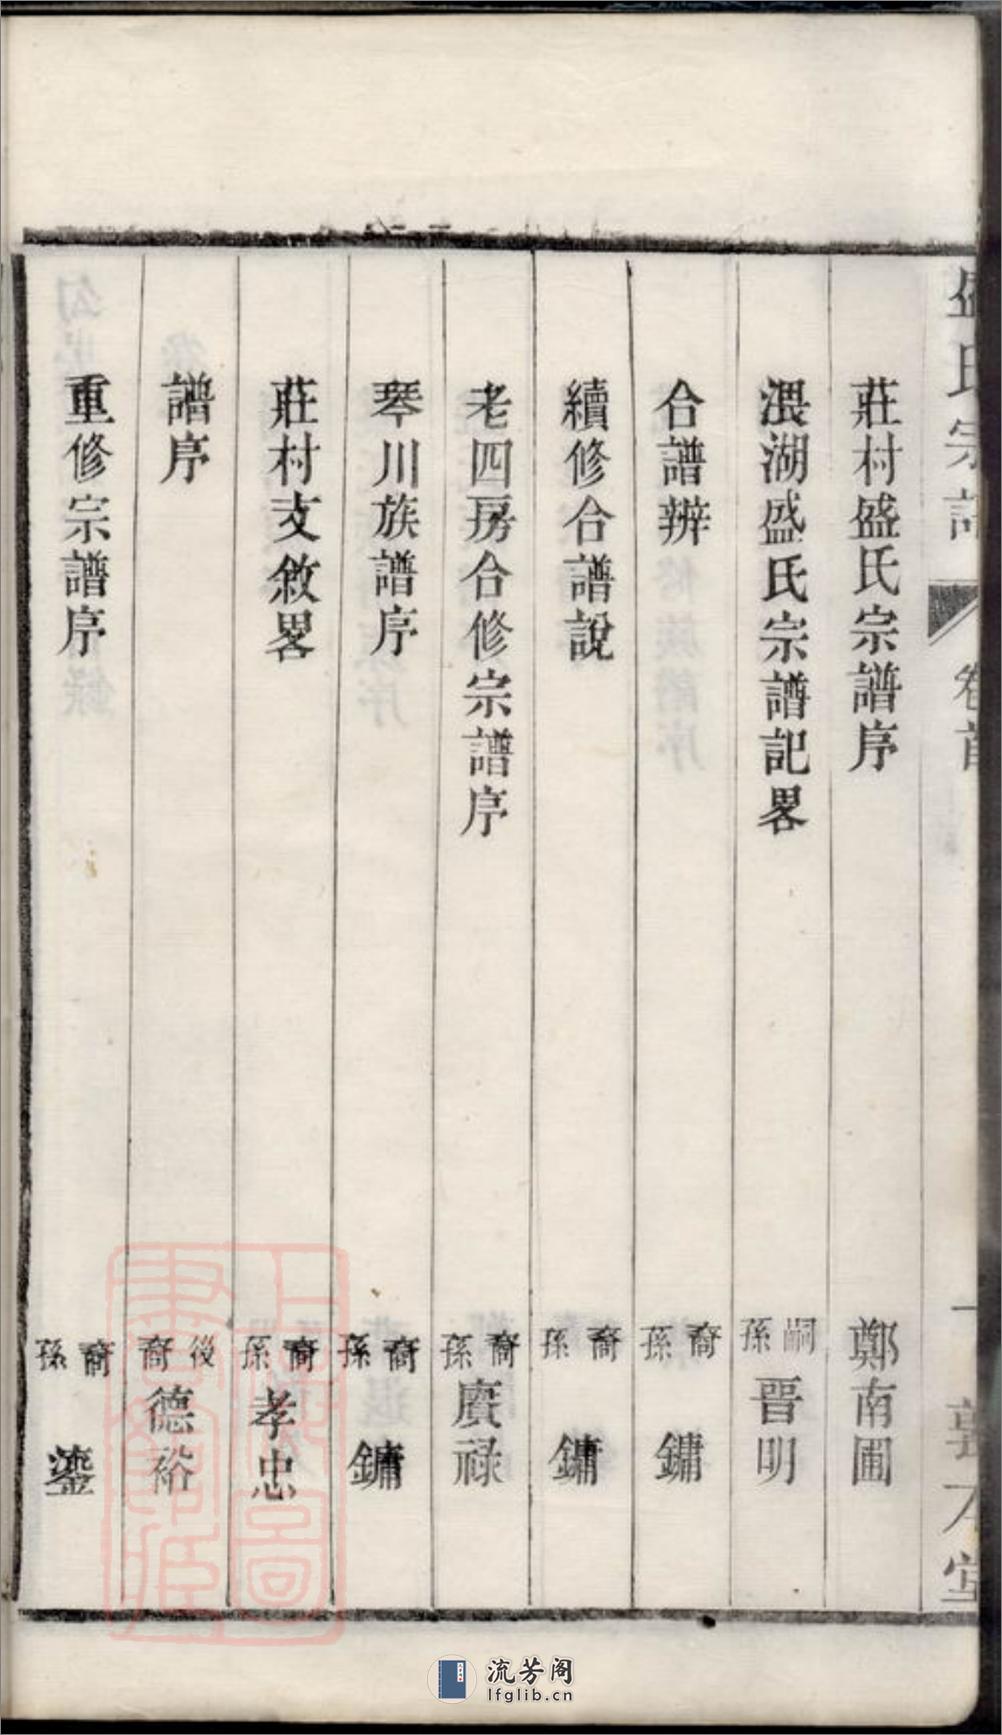 盛氏宗譜
卷首
敦本堂
莊村盛氏宗譜序 鄭南圃
渨湖盛氏宗譜記畧 嗣孫 晋明
合譜辨 裔孫 鏞
續修合譜說 裔孫 鏞
老四房合修宗譜序 裔孫 賡禄
琴川族譜序 裔孫 鏞
莊村支敘畧 裔孫 孝忠
譜序 後裔 德裕
重修宗譜序 裔孫 鎏
上海圖書館藏
流芳阁
lfglib.cn